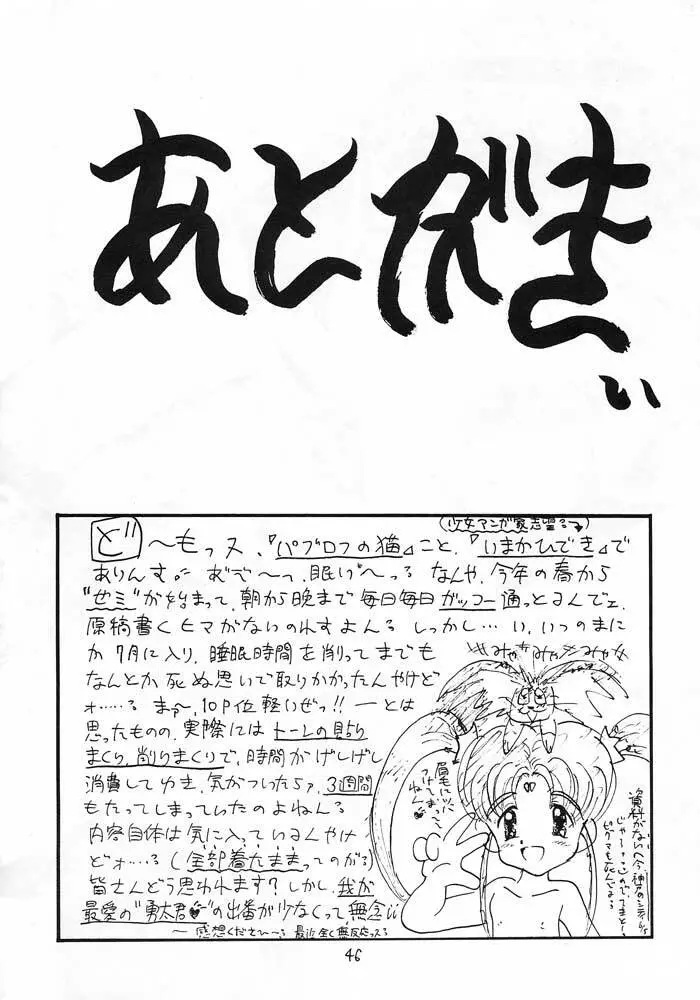 あとがき
(少女マンガ家志望る→)
ど〜もっス、『パブロフの猫』こと、『いまかひでき』で
ありんす。 おでで〜っ、眠いべ〜っる なんや、今年の春から
"ゼミ"が始まって、朝から晩まで毎日毎日ガッコー通っとるんでェ、
原稿書くヒマがないのれすよんる しっかし… い、いつのまに
か7月に入り、睡眠時間を削ってまでも
なんとか死ぬ思いで取りかかったんやけど
ォ……る まァ〜、10P位軽いぜっ!! ーとは
思ったものの、実際にはトーンの貼り
まくり、削りまくりで、時間がげしげし
消費してゆき、気がついたらァ、3週間
もたってしまっていたのよねんる
内容自体は気に入っているんやけ
どォ…る (全部着たままってのがる)
皆さんどう思われます? しかし、我が
最愛の"勇太君"の出番が少なくって、無念
〜感想くださひ〜る 最近全く無反応っスる
みゃみゃみゃみゃ
眉毛に
つけてしまって
ねん
資料がない
46